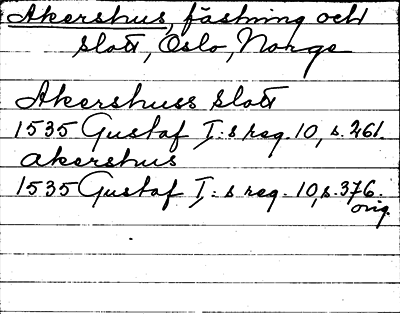 Akershus, fästning och
slott, Oslo, Norge
Akershuss slott
1535 Gustaf I:s reg. 10, s. 261.
Akershus
1535 Gustaf I:s reg. 10, s. 376.
orig.